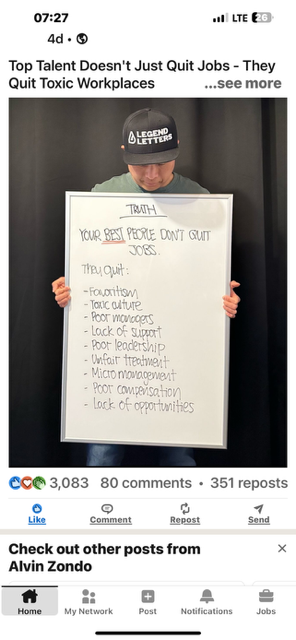 07:27
LTE 26
4d •
Top Talent Doesn't Just Quit Jobs - They
Quit Toxic Workplaces ...see more
LEGEND
LETTERS
TRUTH
YOUR BEST PEOPLE DON'T QUIT
JOBS.
They quit:
- Favoritism
- Toxic culture
- Poor managers
- Lack of support
- Poor leadership
- Unfair treatment
- Micro management
- Poor compensation
- Lack of opportunities
3,083 80 comments • 351 reposts
Like Comment Repost Send
Check out other posts from
Alvin Zondo
Home My Network Post Notifications Jobs